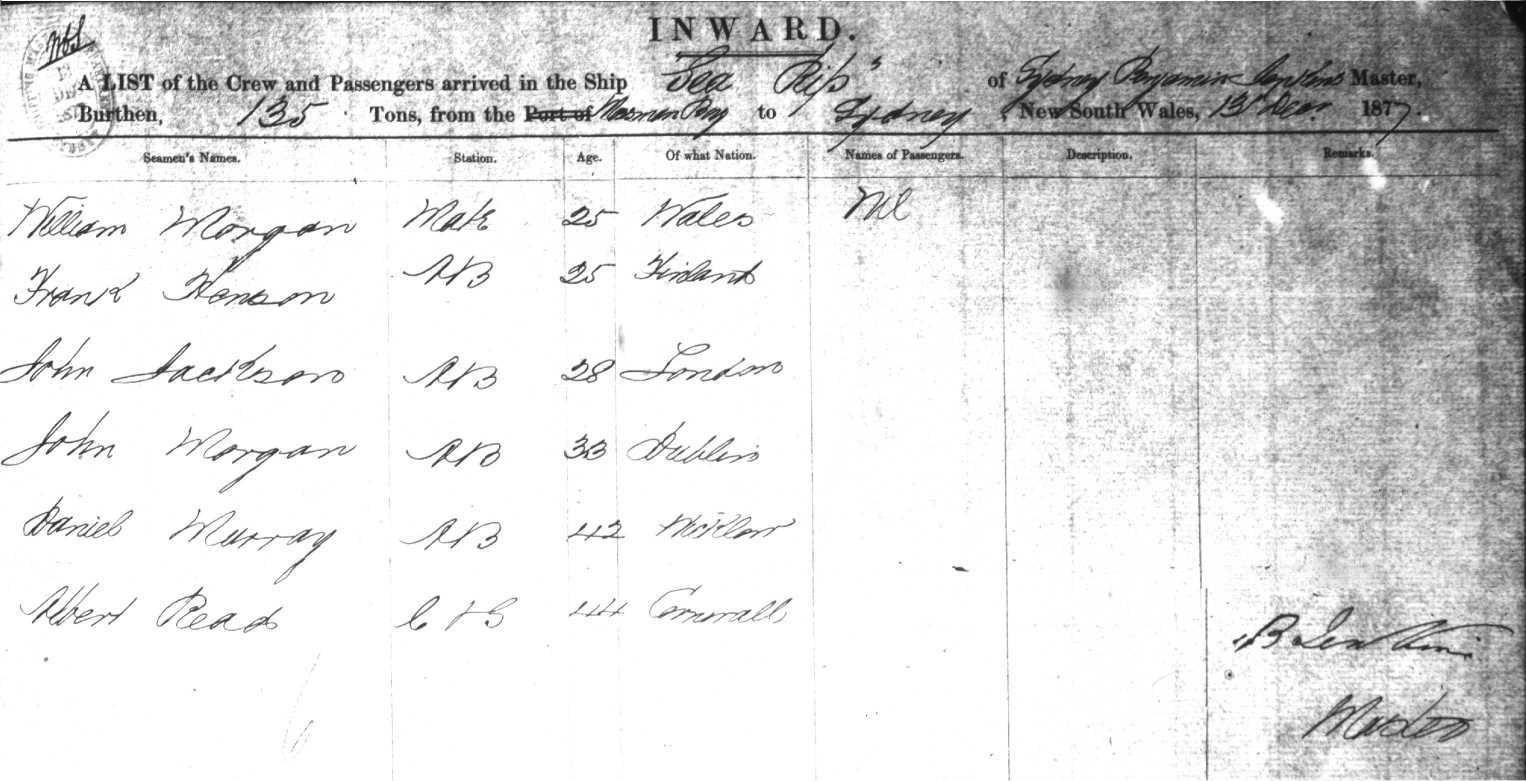 INWARD.
A LIST of the Crew and Passengers arrived in the Ship "Sea Rip" of Sydney Benjamin Jenkins Master,
Burthen, 135 Tons, from the Port of Mosman Bay to Sydney, New South Wales, 13th Decr. 1877.
Seamen's Names. Station. Age. Of what Nation. Names of Passengers. Description. Remarks.
William Morgan Mate 25 Wales Nil
Frank Henson AB 25 Finland
John Jackson AB 28 London
John Morgan AB 33 Dublin
Daniel Murray AB 42 Wicklow
Albert Read C & S 44 Cornwall
B Jenkins
Master